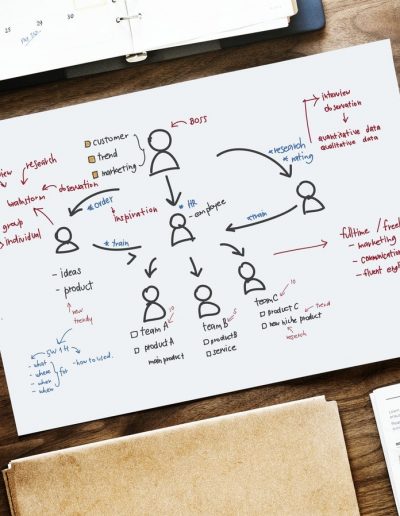 25
29
30
BOSS
customer
trend
marketing
interview
observation
quantitative data
qualitative data
*research
*rating
research
brainstorm
observation
group
individual
*order
inspiration
* HR
- employee
*train
*train
- ideas
- product
new
trendy
fulltime /
- marketing
- communication
- fluent
team A
10
product A
main product
team B
5
product B
service
team C
10
product C
trend
new niche product
research
5W 1H
- what
- where
- when
- how to used.